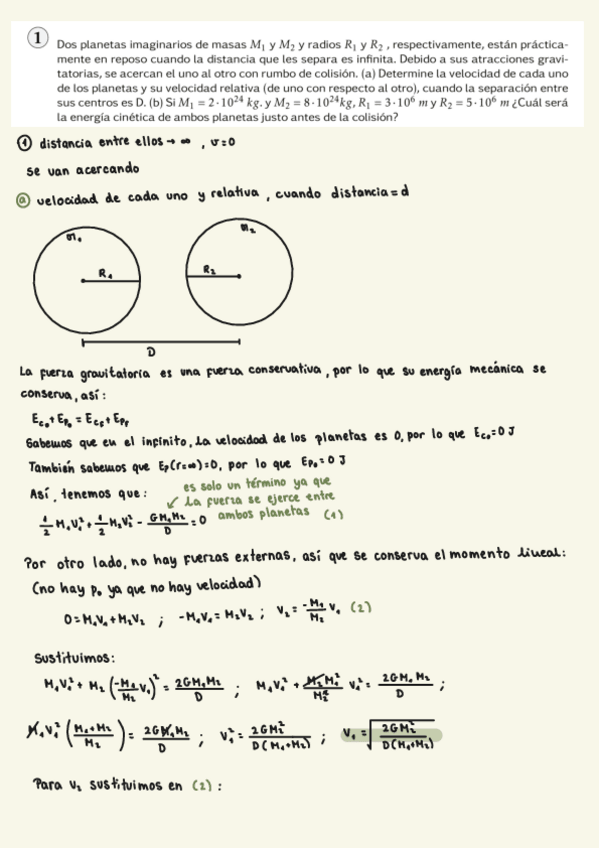 1 Dos planetas imaginarios de masas M₁ y M₂ y radios R₁ y R₂ , respectivamente, están práctica-
mente en reposo cuando la distancia que les separa es infinita. Debido a sus atracciones gravi-
tatorias, se acercan el uno al otro con rumbo de colisión. (a) Determine la velocidad de cada uno
de los planetas y su velocidad relativa (de uno con respecto al otro), cuando la separación entre
sus centros es D. (b) Si M₁ = 2·10²⁴ kg. y M₂ = 8·10²⁴kg, R₁ = 3·10⁶ m y R₂ = 5·10⁶ m ¿Cuál será
la energía cinética de ambos planetas justo antes de la colisión?
① distancia entre ellos → ∞ , v=0
se van acercando
ⓐ velocidad de cada uno y relativa , cuando distancia = d
m₁ m₂
R₁ R₂
D
La fuerza gravitatoria es una fuerza conservativa, por lo que su energía mecánica se
conserva, así:
Ec₀ + Ep₀ = Ecf + Epf
Sabemos que en el infinito, la velocidad de los planetas es 0, por lo que Ec₀ = 0 J
También sabemos que Ep(r=∞)=0, por lo que Ep₀ = 0 J
Así, tenemos que: es solo un término ya que
↙ la fuerza se ejerce entre
1/2 M₁V₁² + 1/2 M₂V₂² - GM₁M₂/D = 0 ambos planetas (1)
Por otro lado, no hay fuerzas externas, así que se conserva el momento lineal:
(no hay p₀ ya que no hay velocidad)
0 = M₁V₁ + M₂V₂ ; -M₁V₁ = M₂V₂ ; V₂ = -M₁/M₂ V₁ (2)
Sustituimos:
M₁V₁² + M₂ (-M₁/M₂ V₁)² = 2GM₁M₂/D ; M₁V₁² + M₂M₁²/M₂² V₁² = 2GM₁M₂/D ;
M₁V₁² (M₁+M₂/M₂) = 2GM₁M₂/D ; V₁² = 2GM₂²/D(M₁+M₂) ; V₁ = √2GM₂²/D(M₁+M₂)
Para V₂ sustituimos en (2) :